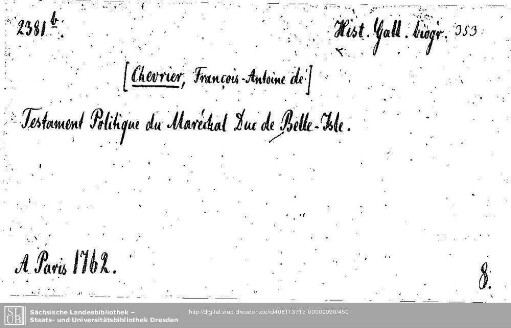 2381 b.
Hist. Gall. biogr. 353
[Chevrier, François-Antoine de]
Testament Politique du Maréchal Duc de Belle-Isle.
A Paris 1762.
8.
Sächsische Landesbibliothek –
Staats- und Universitätsbibliothek Dresden